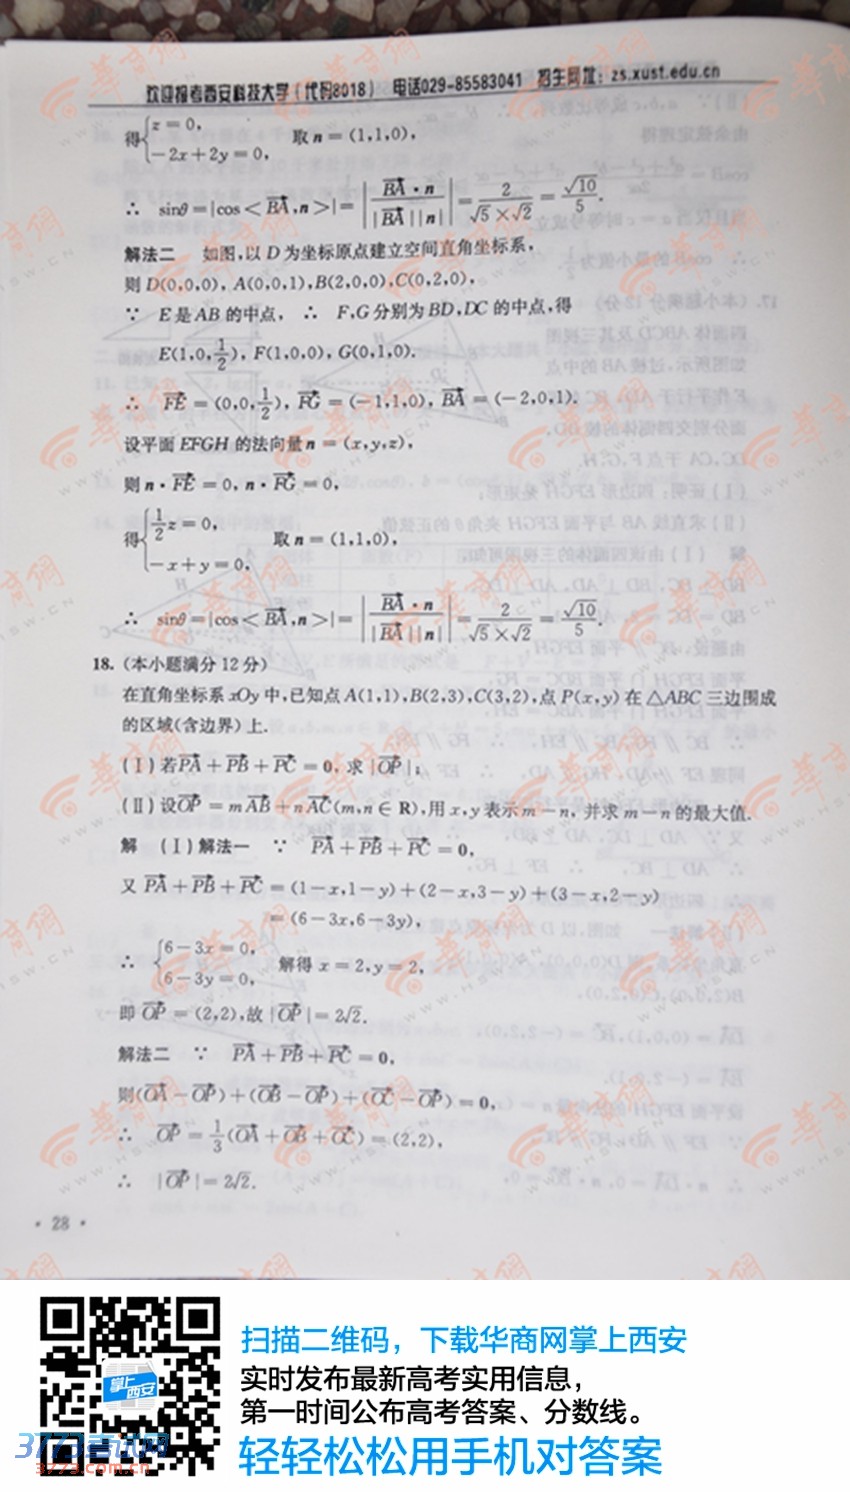 欢迎报考西安科技大学(代码8018) 电话029-85583041 招生网址: zs.xust.edu.cn
得{z=0, -2x+2y=0, 取n=(1,1,0),
∴ sinθ=|cos<BA,n>|=|BA·n/|BA||n||=2/(√5×√2)=√10/5.
解法二 如图,以D为坐标原点建立空间直角坐标系,
则D(0,0,0), A(0,0,1),B(2,0,0),C(0,2,0),
∵ E是AB的中点, ∴ F,G分别为BD,DC的中点,得
E(1,0,1/2), F(1,0,0), G(0,1,0).
∴ FE=(0,0,1/2), FG=(-1,1,0), BA=(-2,0,1).
设平面EFGH的法向量n=(x,y,z),
则n·FE=0,n·FG=0,
得{1/2z=0, -x+y=0, 取n=(1,1,0),
∴ sinθ=|cos<BA,n>|=|BA·n/|BA||n||=2/(√5×√2)=√10/5.
18. (本小题满分12分)
在直角坐标系xOy中,已知点A(1,1),B(2,3),C(3,2),点P(x,y)在△ABC三边围成
的区域(含边界)上.
(Ⅰ)若PA+PB+PC=0, 求|OP|;
(Ⅱ)设OP=mAB+nAC(m,n∈R),用x,y表示m-n, 并求m-n的最大值.
解 (Ⅰ)解法一 ∵ PA+PB+PC=0,
又PA+PB+PC=(1-x,1-y)+(2-x,3-y)+(3-x,2-y)
=(6-3x,6-3y),
∴ {6-3x=0, 6-3y=0, 解得x=2,y=2,
即OP=(2,2),故|OP|=2√2.
解法二 ∵ PA+PB+PC=0,
则(OA-OP)+(OB-OP)+(OC-OP)=0,
∴ OP=1/3(OA+OB+OC)=(2,2),
∴ |OP|=2√2.
· 28 ·
扫描二维码,下载华商网掌上西安
实时发布最新高考实用信息,
第一时间公布高考答案、分数线。
轻轻松松用手机对答案
掌上西安
3773考试网
3773.com.cn
华商网
WWW.HSW.CN